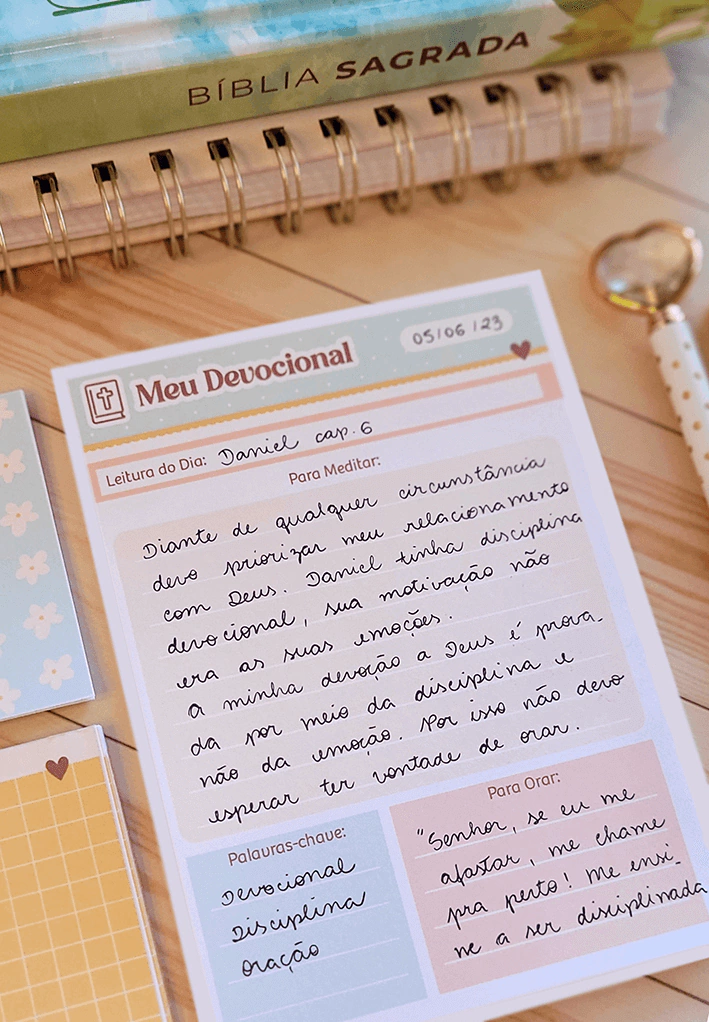 BÍBLIA SAGRADA
Meu Devocional
05/06/23
Leitura do Dia: Daniel cap. 6
Para Meditar:
Diante de qualquer circunstância
devo priorizar meu relacionamento
com Deus. Daniel tinha disciplina
devocional, sua motivação não
era as suas emoções.
A minha devoção a Deus é prova-
da por meio da disciplina e
não da emoção. Por isso não devo
esperar ter vontade de orar.
Palavras-chave:
Devocional
Disciplina
oração
Para Orar:
"Senhor, se eu me
afastar, me chame
pra perto! Me ensi-
ne a ser disciplinada